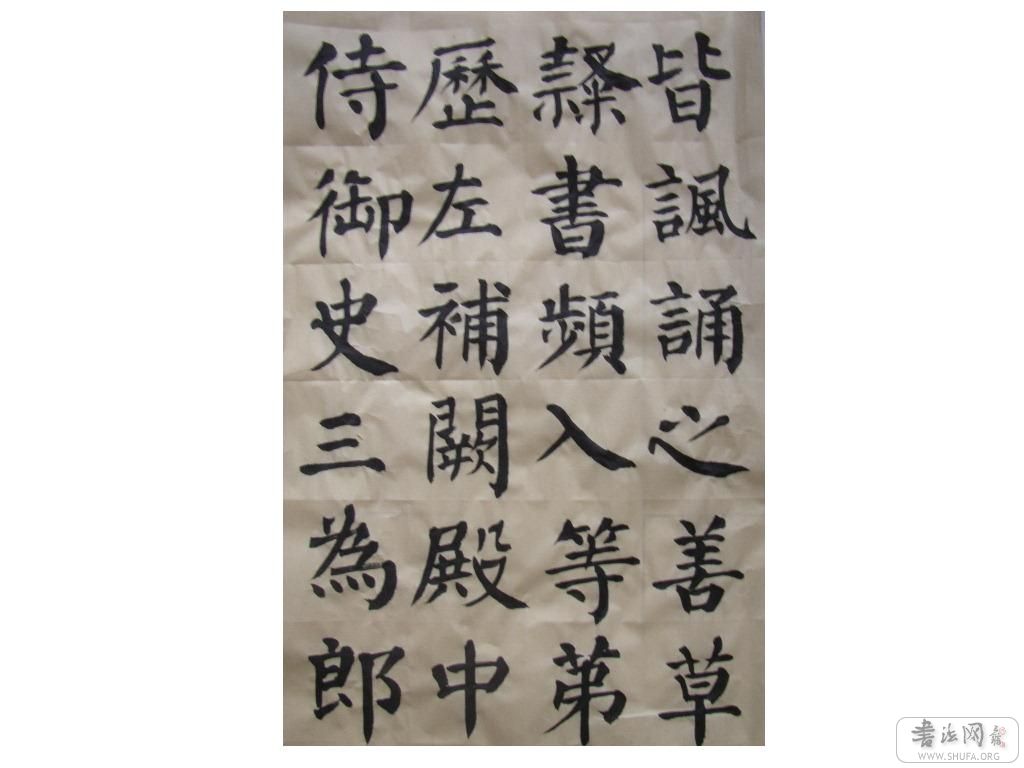 皆諷誦之善草
隸書頻入等第
歷左補闕殿中
侍御史三為郎
書法网
WWW.SHUFA.ORG